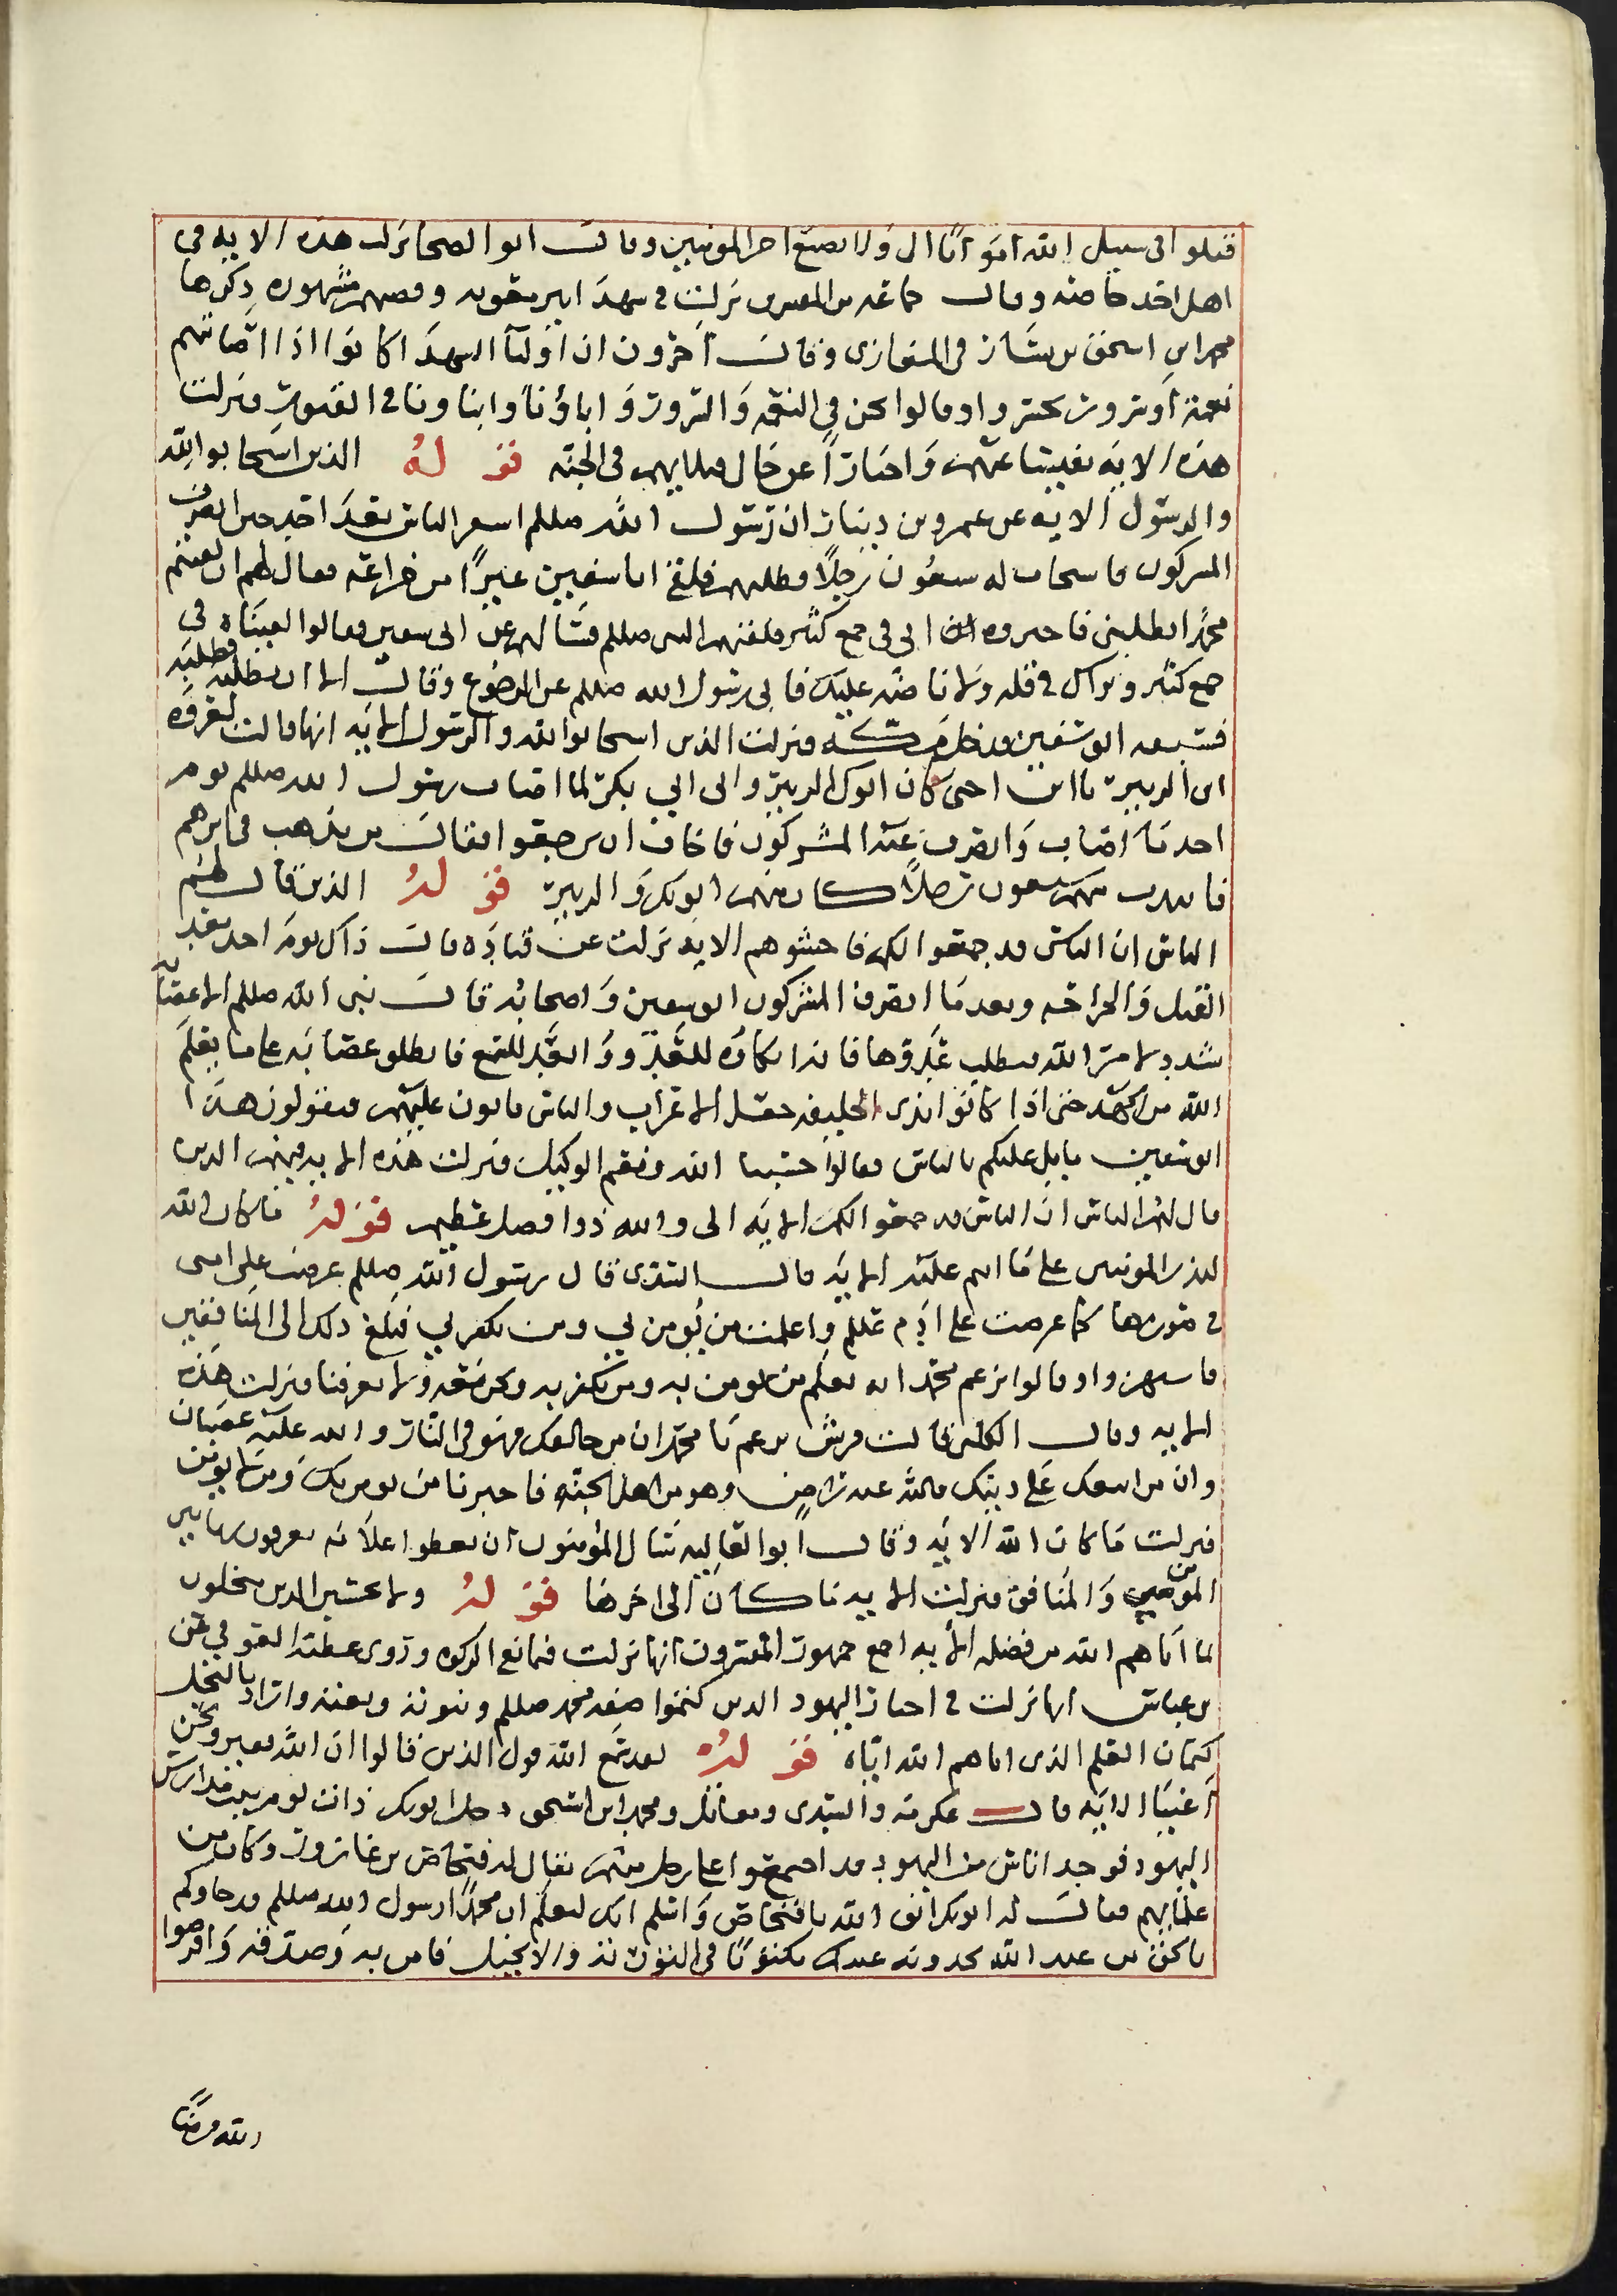 قتلوا في سبيل الله امواتا الى ولا نضيع اجر المومنين وقال ابو الضحا نزلت هذه الاية في
اهل احد خاصة وقال جماعة من المفسرين نزلت في شهدا بير معونه وقصتهم مشهوره ذكرها
محمد ابن اسحق بن يشار في المغازى وقال اخرون ان اوليآ الشهدا كانوا اذا اصابتهم
نعمة او سرور تحسروا وقالوا نحن في النعمة والسرور واباؤنا وابناونا في القبور فنزلت
هذه الايه تنفيسا عنهم واخبارا عن حال قتلاهم في الجنه قوله الذين استجابوا لله
والرسول الايه عن عمرو بن دينار ان رسول الله صللم استنفر الناس بعد احد حين انصرف
المشركون فاستجاب له سبعون رجلا فطلبهم فلقى ابا سفين عيرا من خزاعة فقال لهم ان لقيتم
محمدا يطلبني فاخبروه اني في جمع كثير فلقيهم النبي صللم فسألهم عن ابي سفين فقالوا لقيناه في
جمع كثير ونراك في قله ولا نامنه عليك فابى رسول الله صللم وقال الا ان يطلبه
فسبقه ابو سفين فدخل مكة فنزلت الذين استجابوا لله والرسول الايه انها قالت لعروه
ابن الزبير يا ابن اختي كان ابوك الزبير وابي ابي بكر لما اصاب رسول الله صللم يوم
احد ما اصاب وانصرف عنه المشركون فخاف ان يرجعوا فقال من يذهب في اثرهم
فانتدب منهم سبعون رجلا كان منهم ابو بكر والزبير قوله الذين قال لهم
الناس ان الناس قد جمعوا لكم فاخشوهم الايه نزلت عن قتاده قال ذاك يوم احد بعد
القتل والجراحه وبعد ما انصرف المشركون ابو سفين واصحابه قال نبي الله صللم الا عصابه
الله من الجهد حتى اذا كانوا بذى الحليفه جعل الاعراب والناس ياتون عليهم فيقولون هذا
ابو سفين مايل عليكم بالناس فقالوا حسبنا الله ونعم الوكيل فنزلت هذه الايه فيهم الذين
قال لهم الناس ان الناس قد جمعوا لكم الايه الى والله ذوا فضل عظيم قوله ما كان الله
ليذر المومنين على ما انتم عليه الايه قال السدى قال رسول الله صللم عرضت على امتى
في صورها كما عرضت على ادم عللم واعلمت من يومن بي ومن يكفر بي فبلغ ذلك الى المنافقين
فاستهزوا وقالوا يزعم محمد انه يعلم من يومن به ومن يكفر به ونحن معه ولا يعرفنا فنزلت هذه
الايه وقال الكلبي قالت قريش تزعم يا محمد ان من خالفك فهو في النار والله عليه غضبان
وان من اتبعك على دينك فالله عنه راض وهو من اهل الجنه فاخبرنا من يومن بك ومن لا يومن
فنزلت ما كان الله الايه وقال ابوا العاليه سال المومنون ان يعطوا علامه يعرفون بها بين
المومن والمنافق فنزلت الايه ما كان الى اخرها قوله ولا تحسبن الذين يبخلون
بما اتاهم الله من فضله الايه اجمع جمهور المفسرون انها نزلت في مانع الزكوه وروى عطيه العوفي عن
بن عباس انها نزلت في احبار اليهود الذين كتموا صفه محمد صللم ونبوته ونعته واراد بالبخل
كتمان العلم الذى اتاهم الله اياه قوله لقد سمع الله قول الذين قالوا ان الله فقير ونحن
اغنيا الايه قال عكرمه والسدى ومقاتل ومحمد ابن اسحق دخل ابو بكر ذات يوم بيت مدارس
اليهود فوجد اناس من اليهود قد اجتمعوا على رجل منهم يقال له فنحاص بن عازورا وكان من
علمايهم فقال له ابو بكر اتق الله يا فنحاص واسلم انك لتعلم ان محمدا رسول الله صللم قد جاوكم
بالحق من عند الله تجدونه عندك مكتوبا في التورته والانجيل فامن به وصدقه واقرضوا
الله قرضا